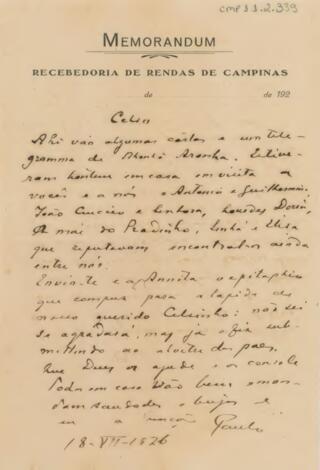 CMP 1.1.2.339
MEMORANDUM
RECEBEDORIA DE RENDAS DE CAMPINAS
de de 192
Celso
Ahi vão algumas cartas e um tele-
gramma de Aranha. Estive-
ram hontem em casa em visita a
vocês e a nós o Antonio e Guilherme,
João e senhora, Lourdes
A mãi do Pradinho, Sinhá e Elisa
que reputavam encontral-os ainda
entre nós.
Envio-te e a Annita o epitaphio
que compuz para a lapide do
nosso querido Celsinho: não sei
se agradará, mas já o fiz sub-
mettendo ao dos paes.
Que Deus os ajude e os console
Todos em casa vão bem e man-
dam saudades e beijos e
eu a benção Paulo
18-VII-1926